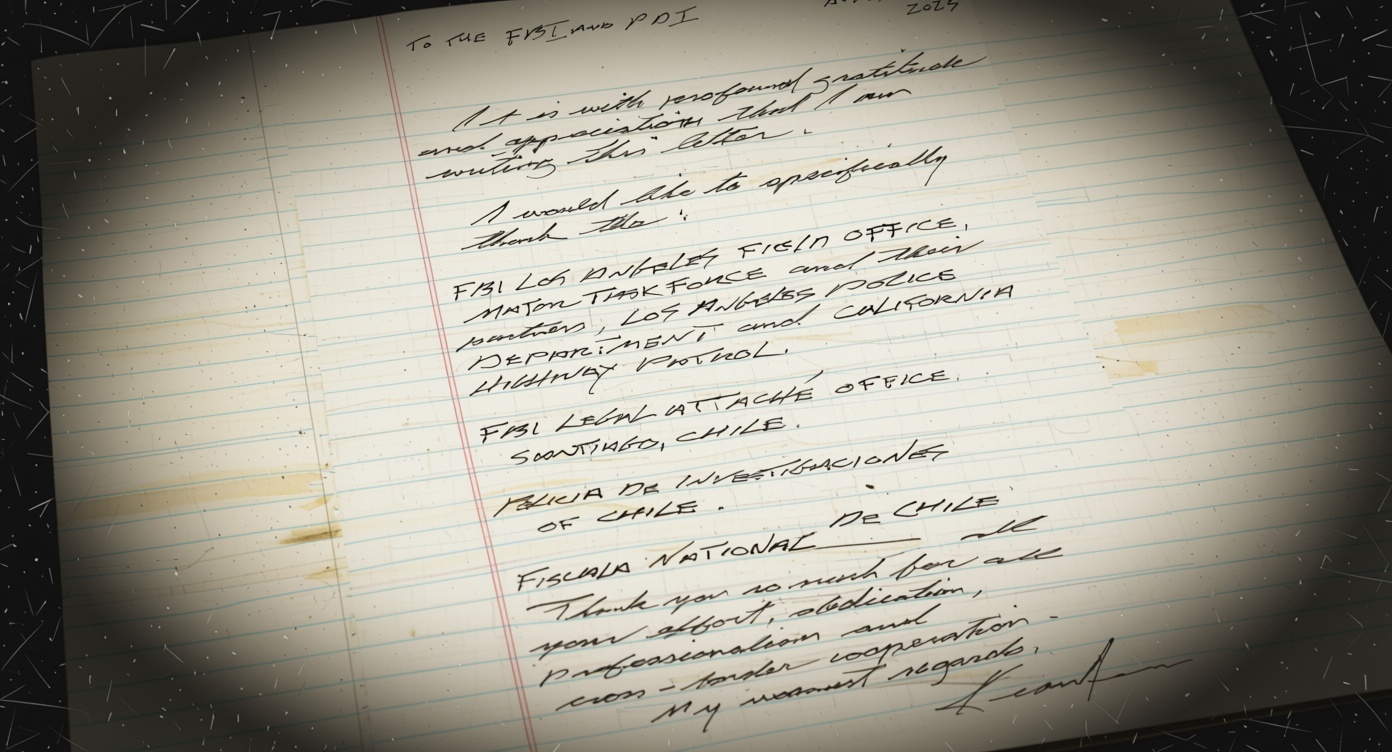 TO THE FBI AND PDI
2025
It is with profound gratitude
and appreciation that I am
writing this letter.
I would like to specifically
thank the :
FBI LOS ANGELES FIELD OFFICE,
MAJOR TASK FORCE and their
partners, LOS ANGELES POLICE
DEPARTMENT and CALIFORNIA
HIGHWAY PATROL.
FBI LEGAL ATTACHÉ OFFICE.
SANTIAGO, CHILE.
POLICIA DE INVESTIGACIONES
OF CHILE.
FISCALA NATIONAL DE CHILE
Thank you so much for all
your effort, dedication,
professionalism and
cross-border cooperation.
My warmest regards,